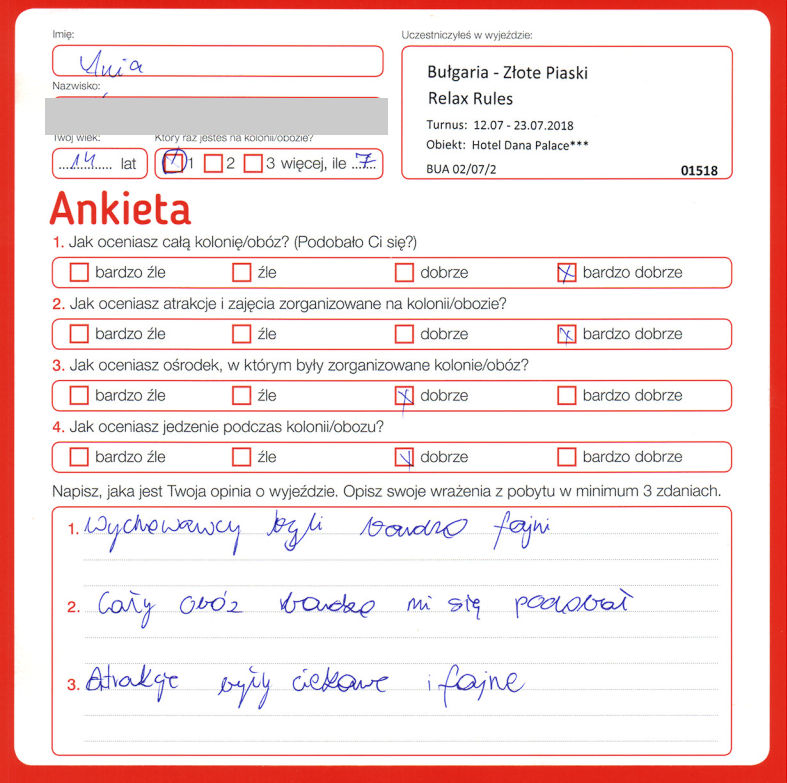 Imię:
Ania
Uczestniczyłeś w wyjeździe:
Bułgaria - Złote Piaski
Relax Rules
Turnus: 12.07 - 23.07.2018
Obiekt: Hotel Dana Palace***
BUA 02/07/2
01518
Nazwisko:
Twój wiek:
Który raz jesteś na kolonii/obozie?
14 lat
1 2 3 więcej, ile 7
Ankieta
1. Jak oceniasz całą kolonię/obóz? (Podobało Ci się?)
bardzo źle źle dobrze bardzo dobrze
2. Jak oceniasz atrakcje i zajęcia zorganizowane na kolonii/obozie?
bardzo źle źle dobrze bardzo dobrze
3. Jak oceniasz ośrodek, w którym były zorganizowane kolonie/obóz?
bardzo źle źle dobrze bardzo dobrze
4. Jak oceniasz jedzenie podczas kolonii/obozu?
bardzo źle źle dobrze bardzo dobrze
Napisz, jaka jest Twoja opinia o wyjeździe. Opisz swoje wrażenia z pobytu w minimum 3 zdaniach.
1. Wychowawcy byli bardzo fajni
2. Cały obóz bardzo mi się podobał
3. Atrakcje były ciekawe i fajne